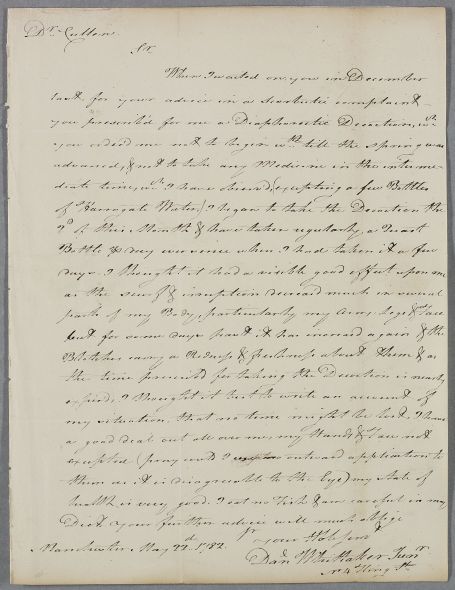 Dr. Cullen
Sr
When I waited on you in December
last for your advice in a Scorbutic complaint
you prescrib'd for me a Diaphoretic Decoction, wh
you order'd me not to begin wth till the spring was
advanced, & not to take any Medicine in the interme-
diate time, wh I have observ'd (excepting a few Bottles
of Harrogate Water) I began to take the Decoction the
2d of this Month & have taken regularly, a Quart
Bottle a day ever since when I had taken it a few
days I thought it had a visible good effect upon me
as the scurf & irruption decreas'd much in several
parts of my Body, particularly my Arms, Legs & Face
but for some days past it has increas'd again & the
Blotches carry a Redness & freshness about them & as
the time prescrib'd for taking the Decoction is nearly
expir'd, I thought it best to write an account of
my situation, that no time might be lost. I have
a good deal out all over me, my Hands & Face not
excepted (pray could I outward application to
them as it is disagreeable to the Eye) my State of
health is very good. I eat no Fish & am careful in my
Diet. Your further advice will much oblige
Yr
Your Hble Servt
Manchester May 22d. 1782.
Danl Whittaker Junr
No. 4 King St